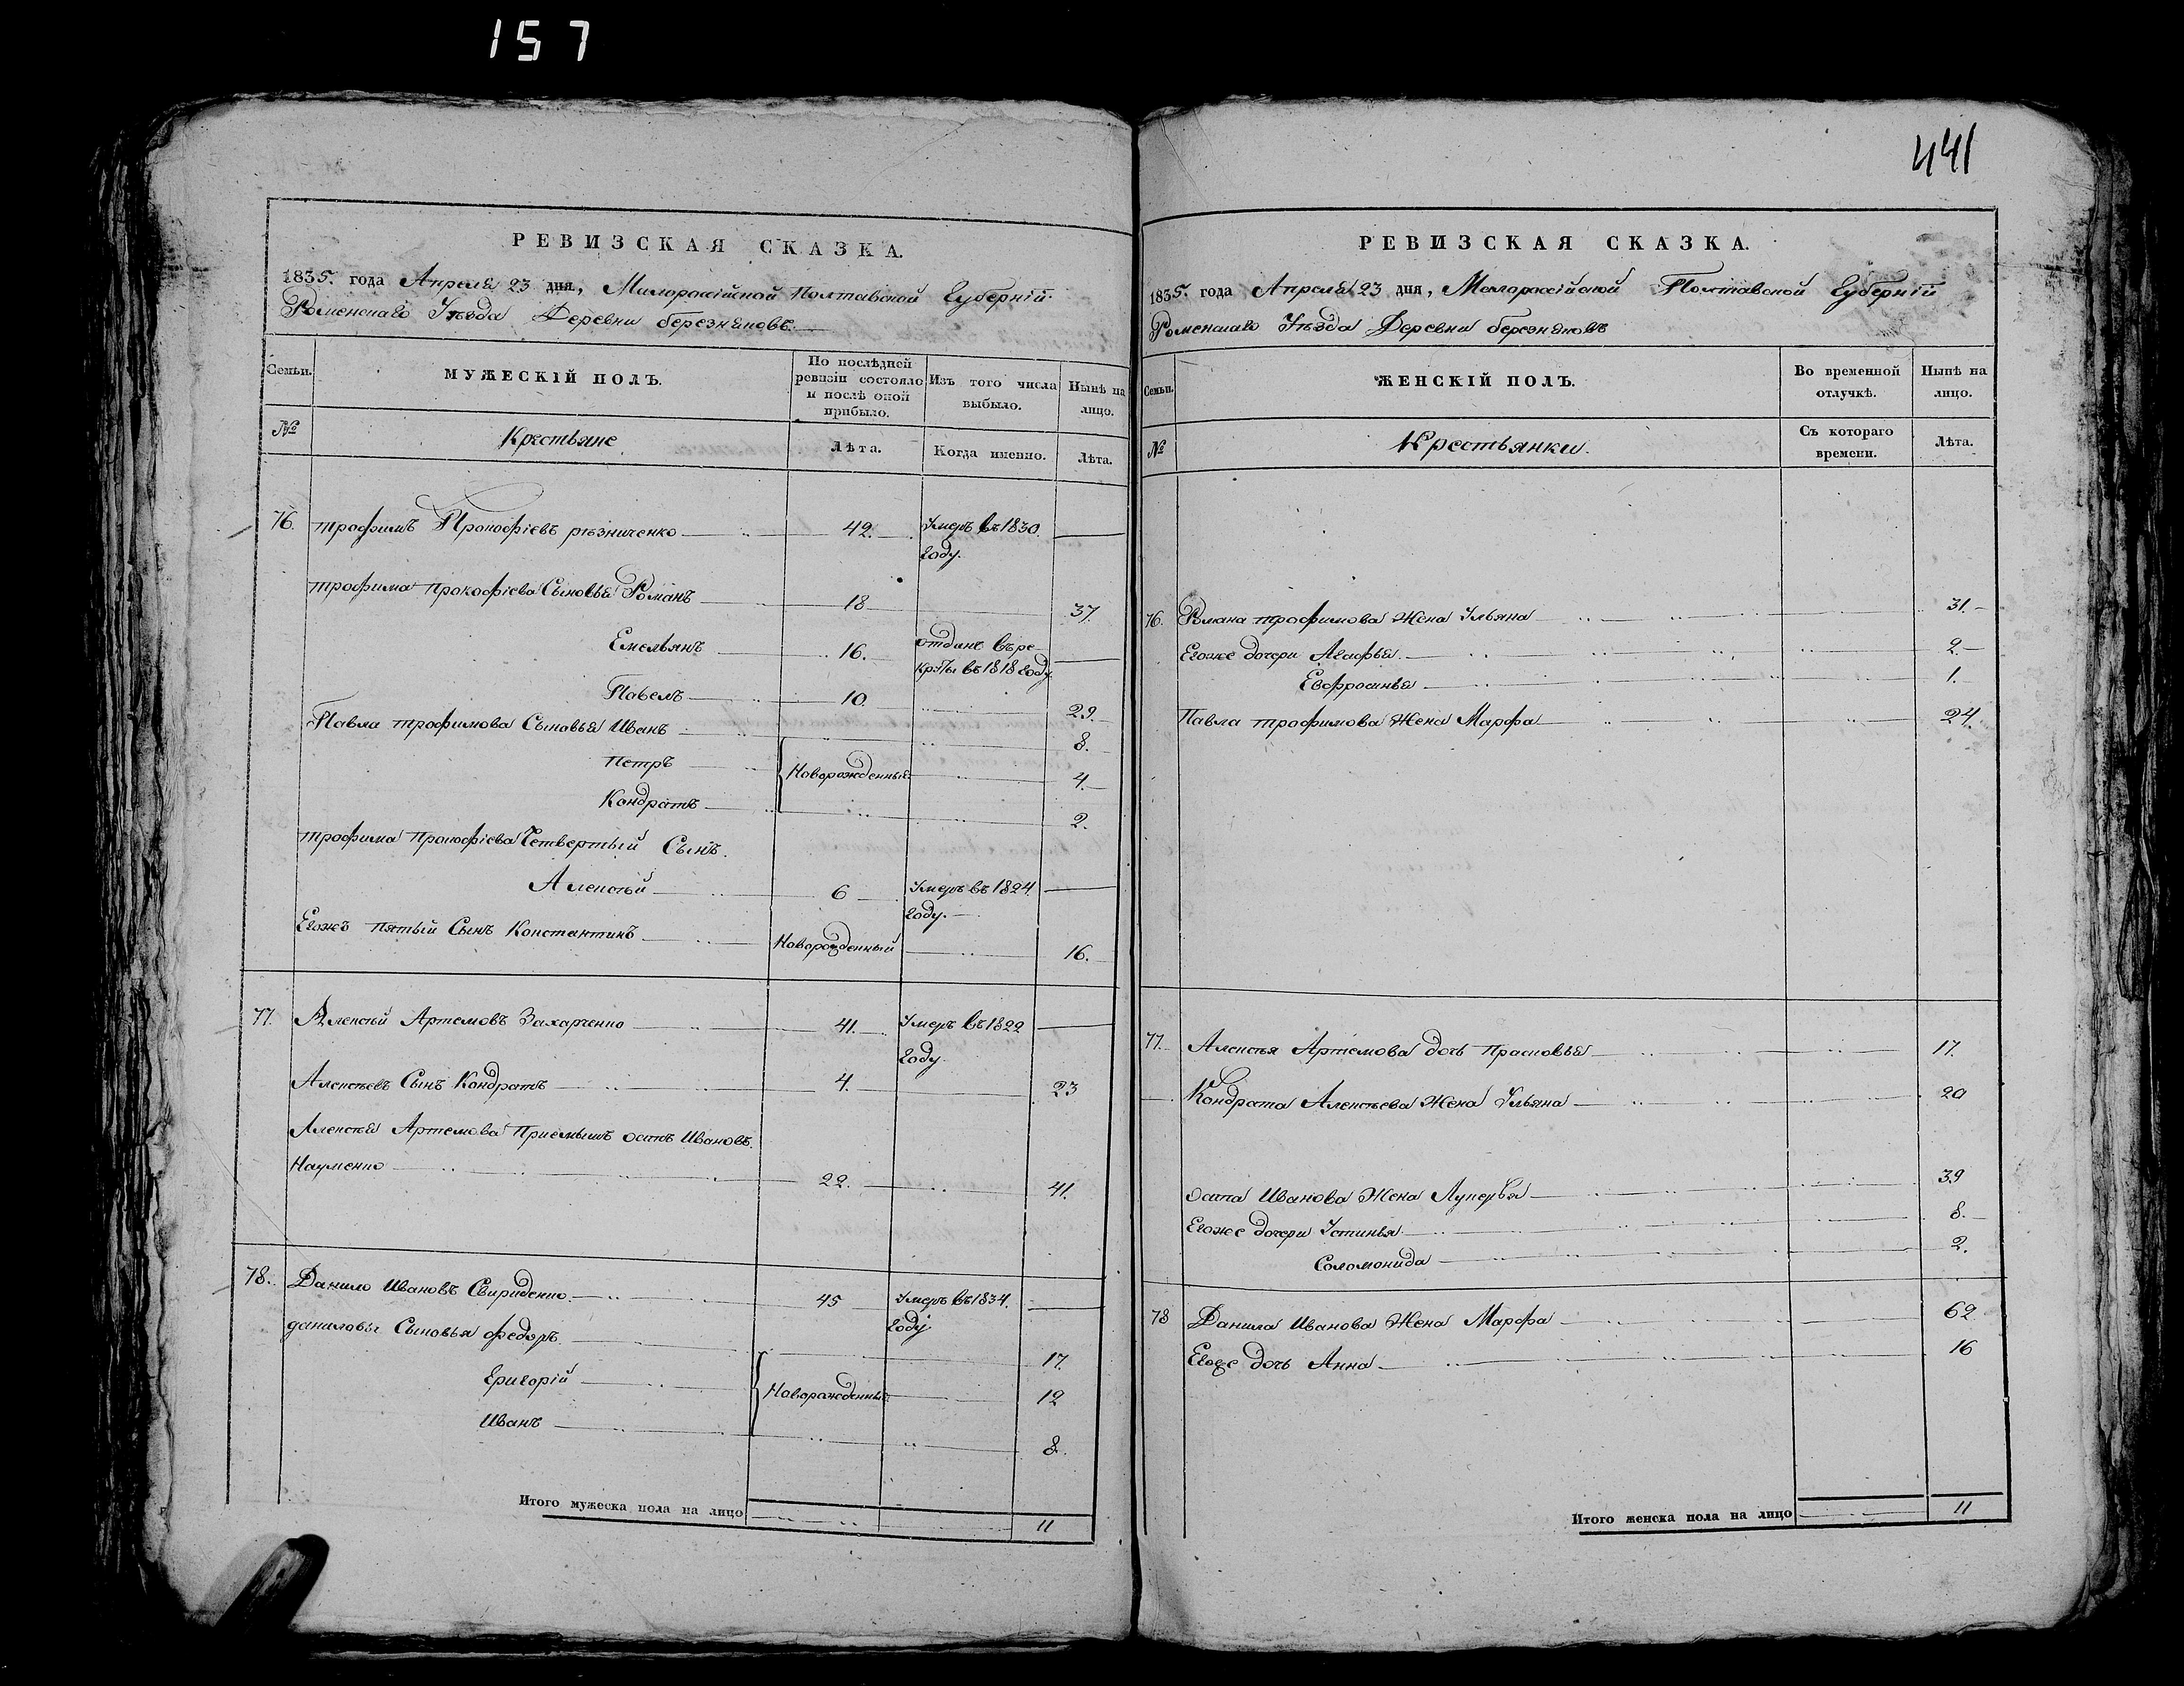 157
441
РЕВИЗСКАЯ СКАЗКА.
1835. года Апреля 23 дня, Малороссійской Полтавской Губерніи
Роменскаго Уѣзда Деревни березняковъ.
Семьи. МУЖЕСКІЙ ПОЛЪ. По послѣдней ревизіи состояло и послѣ оной прибыло. Изъ того числа выбыло. Нынѣ на лицо.
№ Крестьяне Лѣта. Когда именно. Лѣта.
76. трофимъ Прокофіевъ рѣзниченко 42. Умеръ въ 1830.
году.
трофима прокофіева Сыновья Романъ 18 37.
Емельянъ 16. отданъ въ ре-
круты въ 1818 году
Павелъ 10. 29.
Павла трофимова Сыновья Иванъ 8.
Петръ Новорожденныя 4.
Кондратъ 2.
трофима прокофіева Четвертый Сынъ.
Алексѣй 6 Умеръ въ 1824
году.
Егожъ пятый Сынъ Константинъ Новорожденный 16.
77. Алексѣй Артемовъ Захарченко 41. Умеръ въ 1822
году.
Алексѣевъ Сынъ Кондратъ 4. 23
Алексѣя Артемова Приемышъ осипъ Ивановъ.
Науменко 22. 41.
78. Данило Ивановъ Свириденко 45 Умеръ въ 1834.
году
даниловы Сыновья федоръ 17.
Григорій Новорожденныя 12
Иванъ 8.
Итого мужеска пола на лицо 11
РЕВИЗСКАЯ СКАЗКА.
1835. года Апреля 23 дня, Малороссійской Полтавской Губерніи
Роменскаго Уѣзда Деревни березняковъ
Семьи. ЖЕНСКІЙ ПОЛЪ. Во временной отлучкѣ. Нынѣ на лицо.
№ Крестьянки. Съ котораго времени. Лѣта.
76. Романа трофимова Жена Ульяна 31.
Егоже дочери Агафья 2.
Евфросинья 1.
Павла трофимова Жена Марфа 24.
77. Алексѣя Артемова дочь прасковья 17.
Кондрата Алексѣева Жена Ульяна 20
осипа Иванова Жена Лукерья 39
Егоже дочери Устинья 8.
Соломонида 2.
78 Данила Иванова Жена Марфа 62.
Егоже дочь Анна 16
Итого женска пола на лицо 11